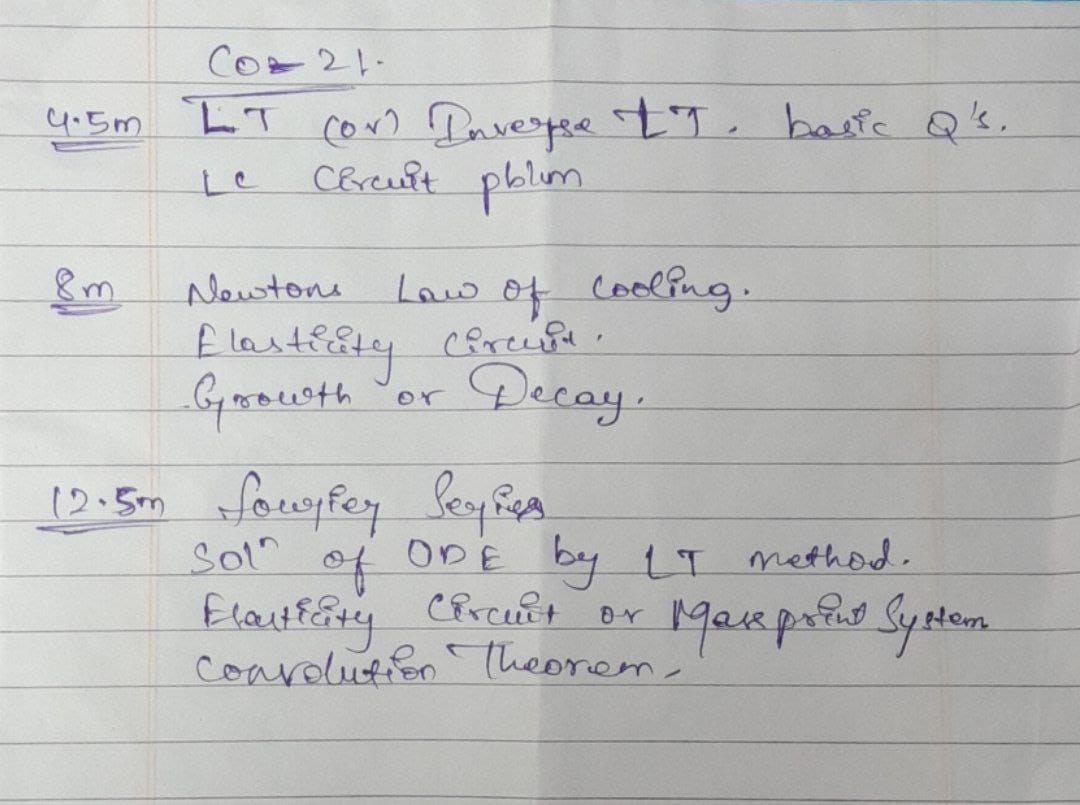 CO-21.
4.5m LT (or) Inverse LT. basic Q's.
LC Circuit pblm
8m Newtons Law of Cooling.
Elasticity Circuit.
Growth or Decay.
12.5m Fourier Series
Solⁿ of ODE by LT method.
Elasticity Circuit or System
Convolution Theorem